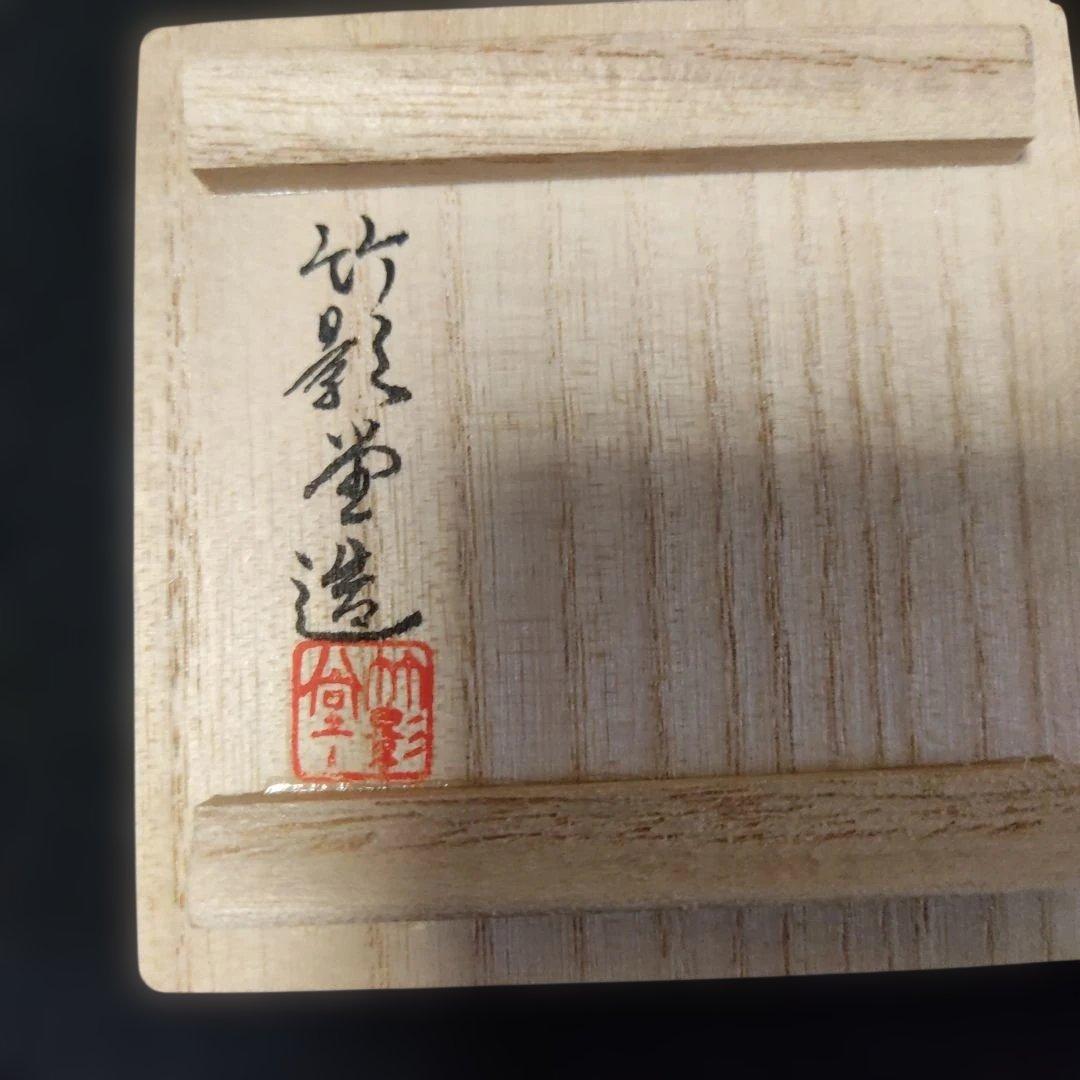 竹影堂造
竹影堂